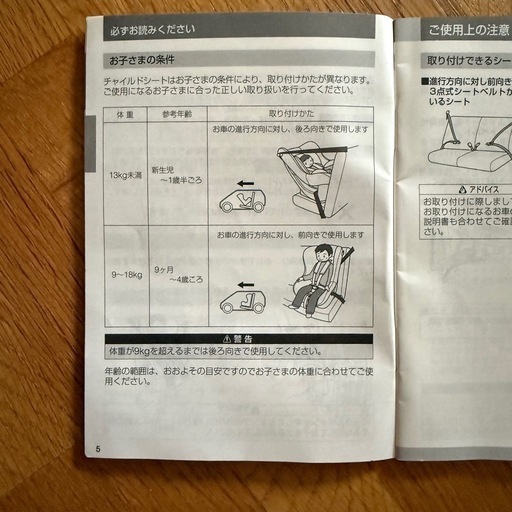 必ずお読みください
お子さまの条件
チャイルドシートはお子さまの条件により、取り付けかたが異なります。
ご使用になるお子さまに合った正しい取り扱いを行ってください。
体 重 参考年齢 取り付けかた
お車の進行方向に対し、後ろ向きで使用します
13kg未満 新生児
～1歳半ごろ
お車の進行方向に対し、前向きで使用します
9～18kg 9ヶ月
～4歳ごろ
⚠ 警 告
体重が9kgを超えるまでは後ろ向きで使用してください。
年齢の範囲は、おおよその目安ですのでお子さまの体重に合わせてご使
用ください。
5
ご使用上の注意
取り付けできるシー
■進行方向に対し前向き
3点式シートベルトか
いるシート
⚠ アドバイス
お取り付けに際しまし
お取り付けになるお車の
説明書も合わせてご確認
さい。